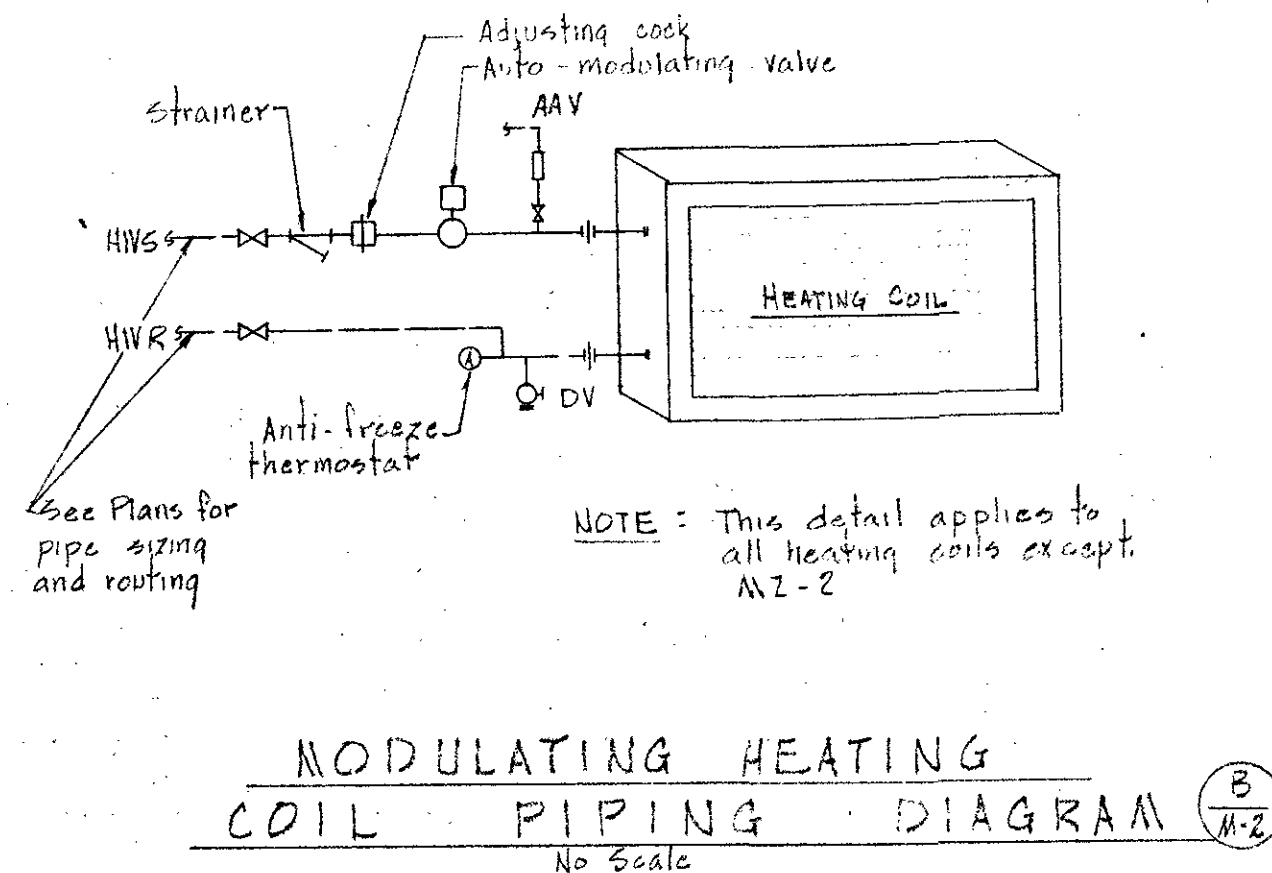 Adjusting cock
Auto-modulating valve
strainer
AAV
HWS
HWR
HEATING COIL
A
DV
Anti-freeze
thermostat
See Plans for
pipe sizing
and routing
NOTE : This detail applies to
all heating coils except
MZ-2
MODULATING HEATING
COIL PIPING DIAGRAM
B
M-2
No Scale